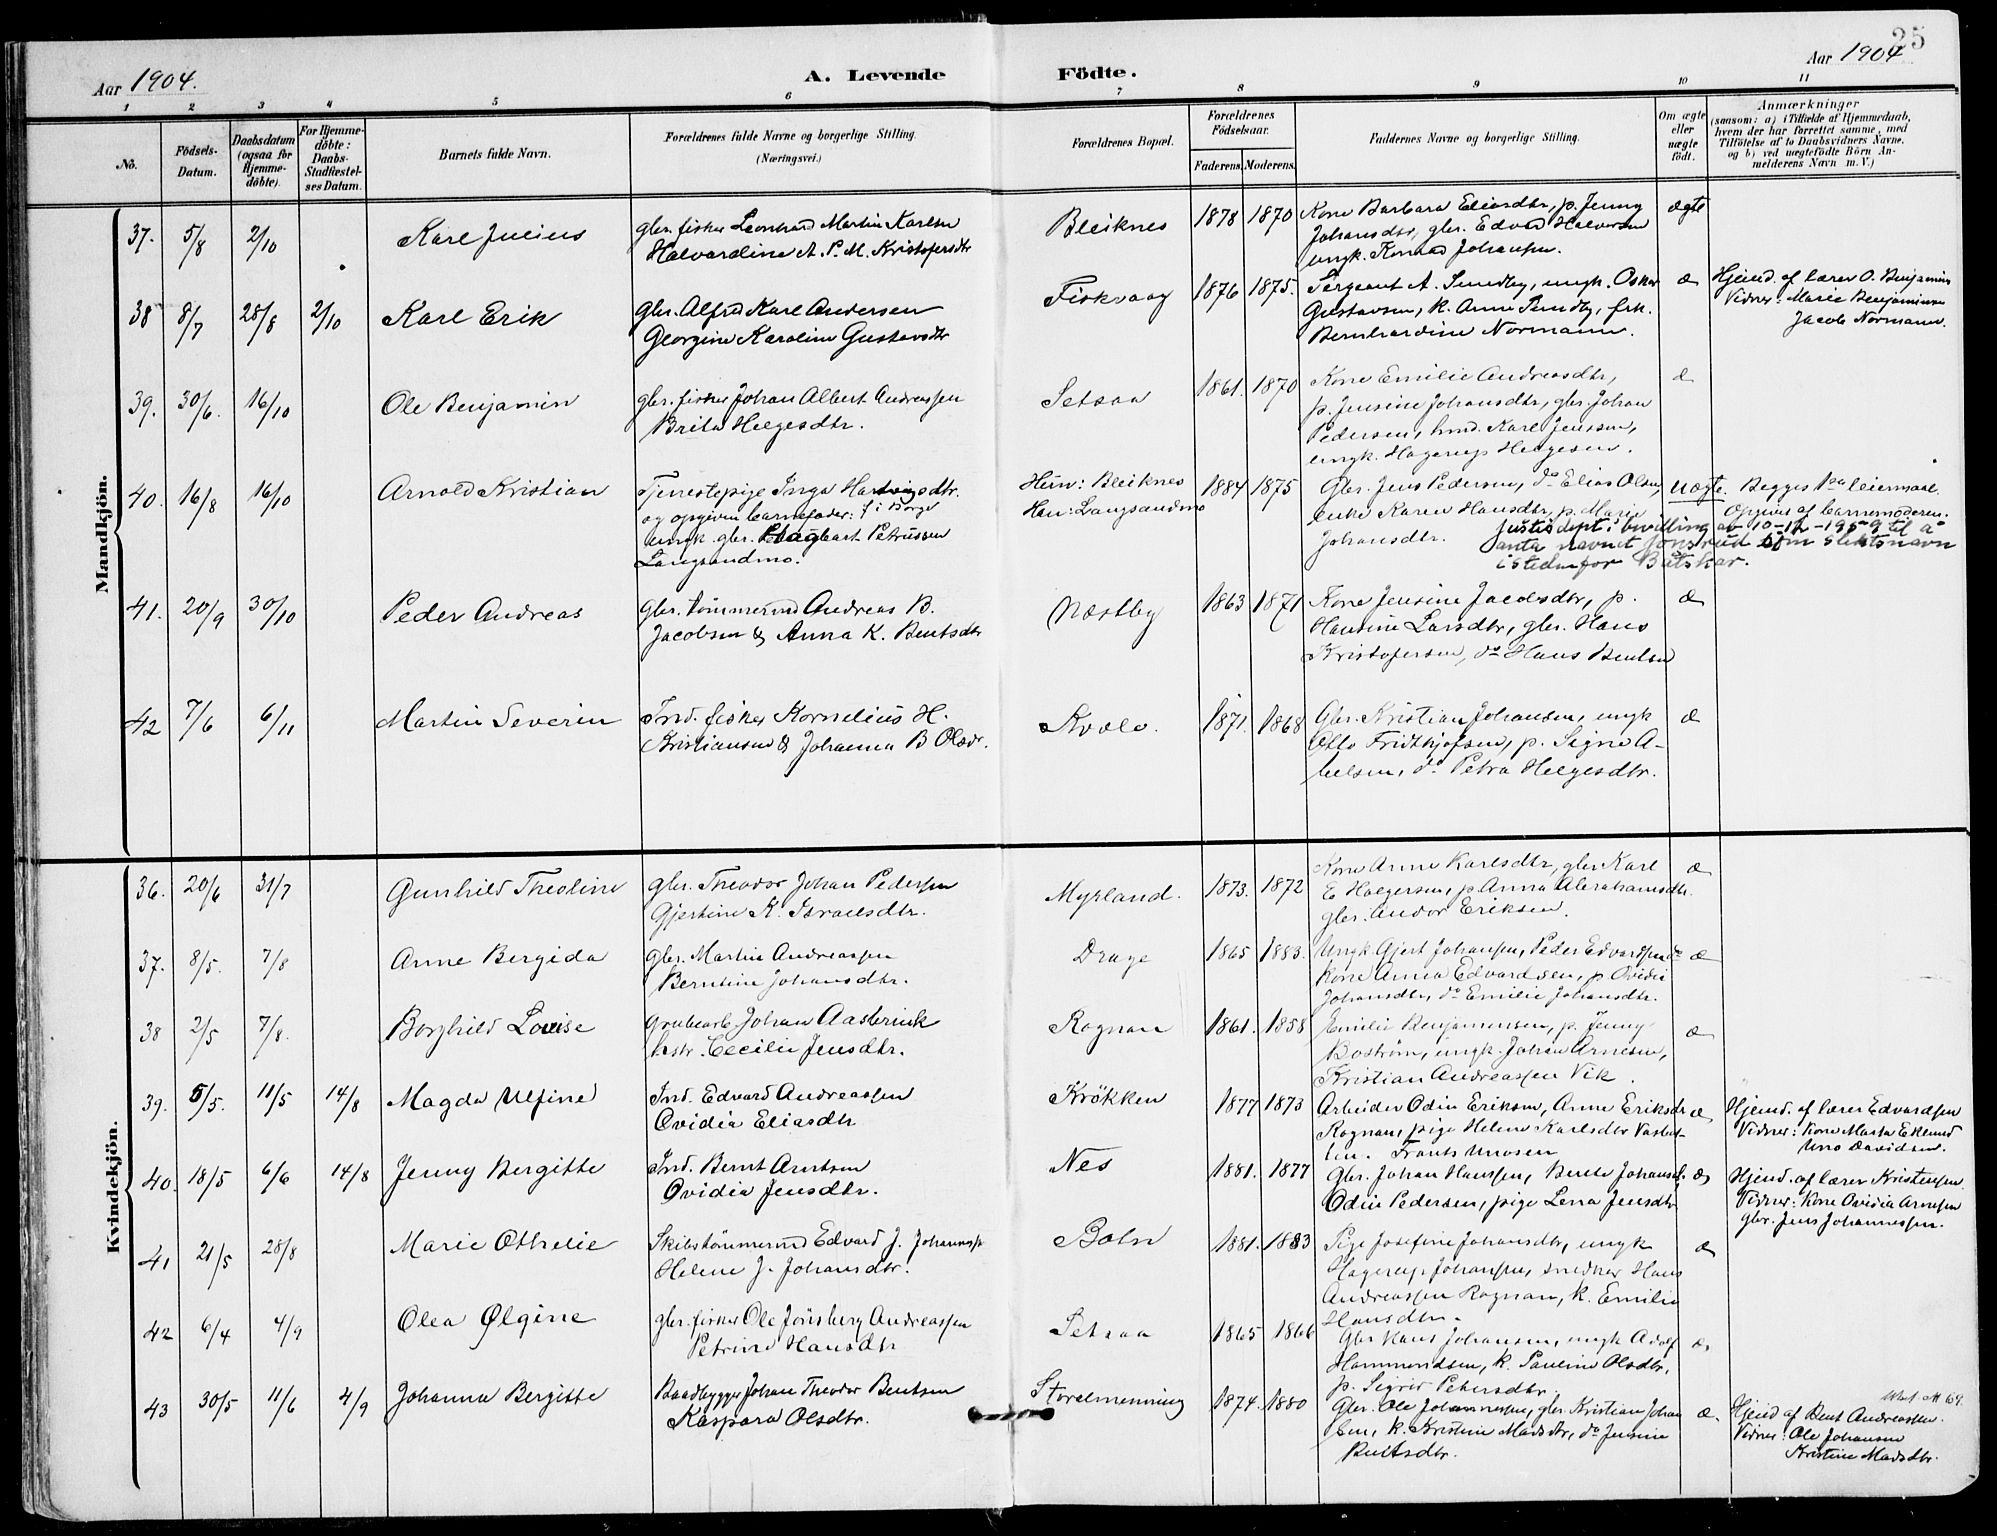 25
Aar 1904.
A. Levende
Födte.
Aar 1904
1 2 3 4 5 6 7 8 9 10 11
Nó.
Födsels-
Datum.
Daabsdatum
(ogsaa for
Hjemme-
döbte).
For Hjemme-
döbte:
Daabs-
Stadfæstel-
ses Datum.
Barnets fulde Navn.
Forældrenes fulde Navne og borgerlige Stilling.
(Næringsvei.)
Forældrenes Bopæl.
Forældrenes
Födselsaar.
Faderens. Moderens.
Faddernes Navne og borgerlige Stilling.
Om ægte
eller
uægte
födt.
Anmærkninger
(saasom: a) i Tilfælde af Hjemmedaab,
hvem der har forrettet samme, med
Tilföielse af to Daabsvidners Navne.
og b) ved uægtefödte Börn An-
melderens Navn m. V.)
Mandkjön.
37. 5/8 2/10 Karl Julius
gbr. fisker Leonhard Martin Karlsen
Halvardine A. P. M. Kristofersdtr
Bleiknes 1878 1870
Kone Barbara Eliasdtr, p. Jenny
Johansdtr, gbr. Edvard Halvorsen
ungk. Konrad Johansen.
ægte
38 8/7 28/8 2/10 Karl Erik
gbr. Alfred Karl Andersen
Georgine Karoline Gustavsdtr
Fiskvaag 1876 1875.
Sergeant A. Sundby, ungk. Oskar
Gustavsen, k. Anne Sundby, frk.
Bernhardine Normann.
æ
Hjemd. af lærer O. Benjamins
Vidner: Marie Benjaminsen
Jacob Normann.
39. 30/6. 16/10 Ole Benjamin
gbr. fisker Johan Albert Andreassen
Brita Helgesdtr.
Setsaa 1861. 1870
Kone Emilie Andreasdtr,
p. Jensine Johansdtr, gbr. Johan
Pedersen, hmd. Karl Jenssen,
ungk. Hagerup Helgesen.
æ
40. 16/8 16/10 Arnold Kristian
Tjenestepige Inga Hartvigsdtr.
og opgiven barnefader: f. i Borge
ungk. gbr. Hagbart Petrussen
Langsandmo.
Hun: Bleiknes
Han: Langsandmo
1884 1875
Gbr. Jens Pedersen, do Elias Olsen,
enke Karen Hansdtr, p. Marie
Johansdtr.
uægte.
Begges 1ste leiermaal.
Opgivet af barnemoderen.
Justisdept.s bevilling av 10-12-1959 til å
anta navnet Jonsrud som slektsnavn
istedenfor Båtskar.
41. 20/9 30/10 Peder Andreas
gbr. tömmermd Andreas B.
Jacobsen & Anna K. Bentsdtr
Næstby 1863 1871
Kone Jensine Jacobsdtr, p.
Hansine Larsdtr, gbr. Hans
Kristofersen, do Hans Bentsen
æ
42 7/6 6/11 Martin Severin
Ind. fisker Kornelius H.
Kristiansen & Johanna B Olsdr.
Kvæle. 1871. 1868
Gbr. Kristian Johansen, ungk
Otto Fridthjofsen, p. Signe A-
belsen, do Petra Helgesdtr.
æ
Kvindekjön.
36. 20/6 31/7 Gunhild Theoline
gbr. Theodor Johan Pedersen
Gjertine K. Israelsdtr.
Myrland. 1873. 1872
Kone Anne Karlsdtr, gbr Karl
E Holgersen, p. Anna Abrahamsdtr.
gbr. Andor Eriksen.
æ
37. 8/5. 7/8 Anne Bergida
gbr. Martin Andreassen
Berntine Johansdtr.
Drage 1865 1883.
Ungk Gjert Johansen, Peder Edvardsen do
Kone Anna Edvardsen, p Ovidie
Johansdtr, do Emilie Johansdtr.
æ
38 2/5 7/8. Borghild Lovise
Grubearb. Johan Aasbrink
hstr. Cecilie Jensdtr.
Rognan 1861. 1858
Emilie Benjaminsen, p. Jenny
Boström, ungk. Johan Arnesen,
Kristian Andreassen Vik.
æ
39. 5/5. 11/5 14/8 Magda Ulfine
Ind. Edvard Andreassen
Ovidia Eliasdtr
Krökken 1877 1873
Arbeider Odin Eriksen, Anne Eriksdtr
Rognan, pige Helene Karlsdtr Vasbot-
ten. Frants Unosen
æ
Hjemd. af lærer Edvardsen
Vidner: Kone Marta Eklund
Uno Davidsen.
40. 18/5 6/6 14/8 Jenny Bergitte
Ind. Bernt Arntsen
Ovidia Jensdtr.
Nes 1881. 1877
Gbr. Johan Hanssen, Berete Johansd.
Odin Pedersen, pige Lena Jensdtr
æ
Hjemd. af lærer Kristensen
Vidner: Kone Ovidia Arnesen
gbr. Jens Johannessen.
41 21/5 28/8 Marie Othelie
Skibstömmermd Edvard J. Johanness
Helene J. Johansdtr.
Botn 1881. 1883
Pige Josefine Johansdtr, ungk
Hagerup Johansen, snedker Hans
Andreassen Rognan, k. Emilie
Hansdtr.
æ
42 6/4 4/9 Olea Ølgine
gbr. fisker Ole Jönsberg Andreassen
Petrine Hansdtr
Setsaa 1865 1866
Gbr Hans Johansen, ungk Adolf
Hammundsen, k. Pauline Olsdtr,
p. Sigrid Petersdtr.
æ
43 30/5 11/6 4/9 Johanna Bergitte
Baadbygger Johan Theodor Bentsen
Kaspara Olsdtr.
Storelmenning 1874. 1880
Gbr. Ole Johannessen, gbr. Kristian Johan
sen, k. Kristine Madsdtr, do Jensine
Bentsdtr.
æ.
Hjemd af Bent Andreassen.
Vidner: Ole Johansen
Kristine Madsdtr.